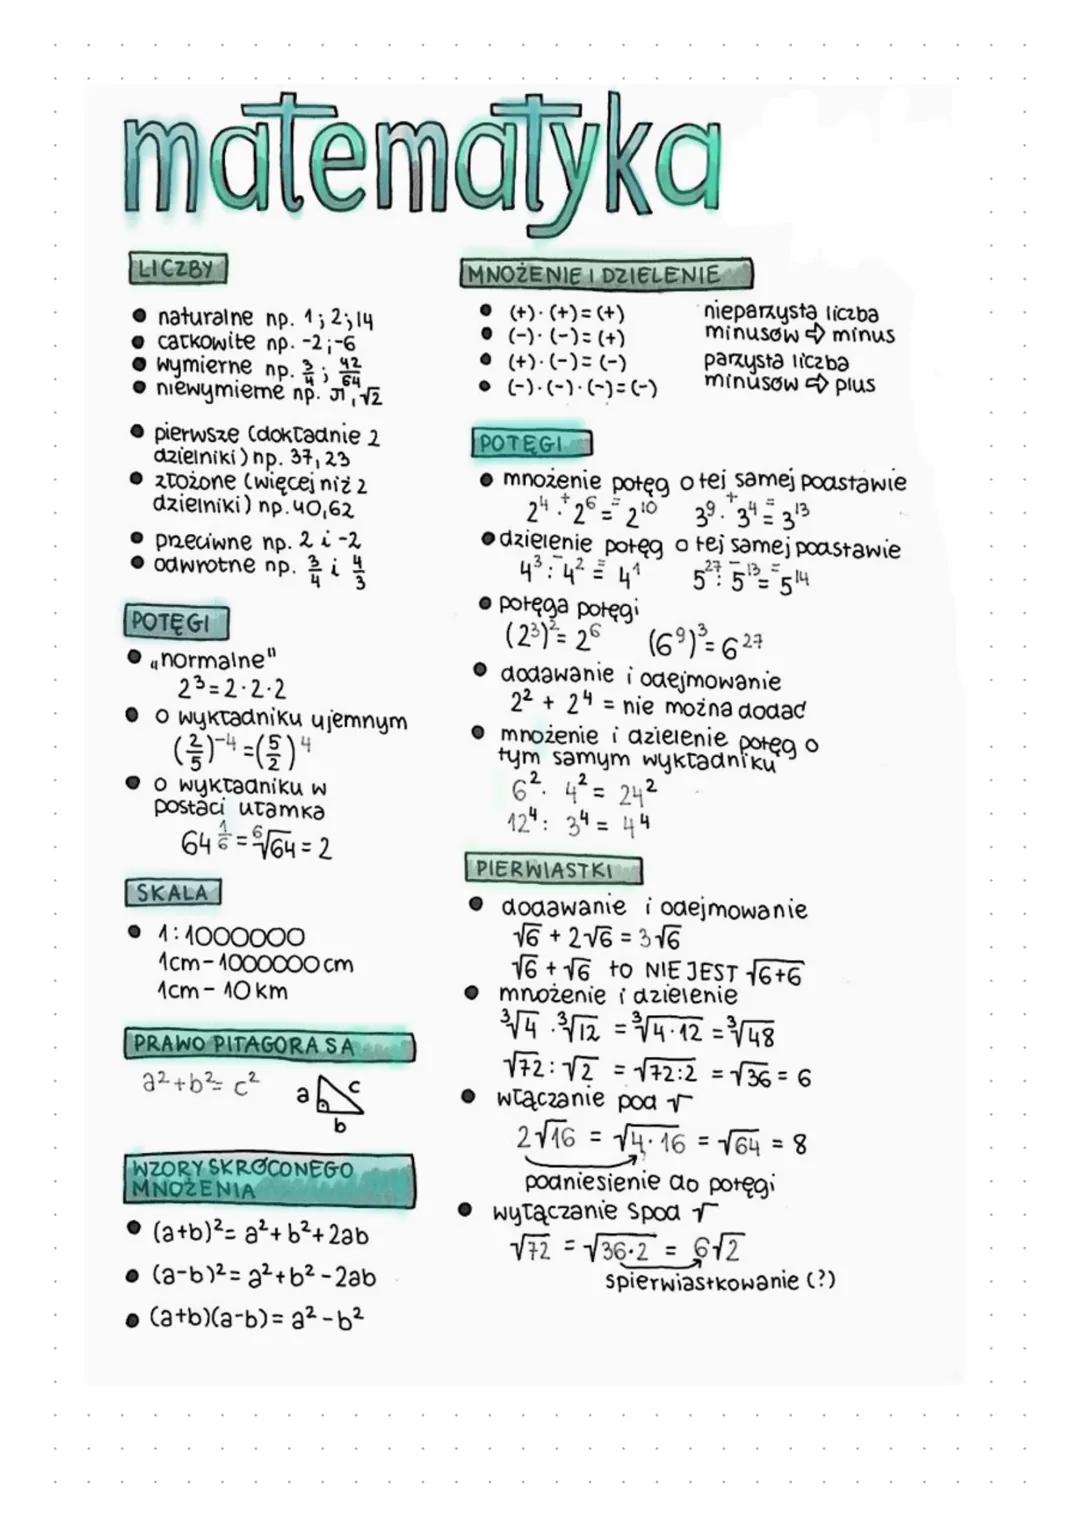 matematyka
LICZBY
• naturalne np. 1; 2; 14
• całkowite np. -2; -6
• wymierne np. 3/4; 42/64
• niewymierne np. π, √2
• pierwsze (dokładnie 2
dzielniki) np. 37, 23
• złożone (więcej niż 2
dzielniki) np. 40, 62
• przeciwne np. 2 i -2
• odwrotne np. 3/4 i 4/3
POTĘGI
• „normalne"
2³ = 2·2·2
• o wykładniku ujemnym
(2/5)⁻⁴ = (5/2)⁴
• o wykładniku w
postaci ułamka
64^(1/6) = ⁶√64 = 2
SKALA
• 1:1000000
1cm - 1000000cm
1cm - 10km
PRAWO PITAGORASA
a² + b² = c²
a
c
b
WZORY SKRÓCONEGO
MNOŻENIA
• (a+b)² = a² + b² + 2ab
• (a-b)² = a² + b² - 2ab
• (a+b)(a-b) = a² - b²
MNOŻENIE I DZIELENIE
• (+)·(+) = (+)
• (-)·(-) = (+)
• (+)·(-) = (-)
• (-)·(-)·(-) = (-)
nieparzysta liczba
minusów ⇨ minus
parzysta liczba
minusów ⇨ plus
POTĘGI
• mnożenie potęg o tej samej podstawie
2⁴ ·⁺ 2⁶ =⁼ 2¹⁰ 3⁹ ·⁺ 3⁴ =⁼ 3¹³
• dzielenie potęg o tej samej podstawie
4³ :⁻ 4² =⁼ 4¹ 5²⁷ :⁻ 5¹³ =⁼ 5¹⁴
• potęga potęgi
(2³)² = 2⁶ (6⁹)³ = 6²⁷
• dodawanie i odejmowanie
2² + 2⁴ = nie można dodać
• mnożenie i dzielenie potęg o
tym samym wykładniku
6² · 4² = 24²
12⁴ : 3⁴ = 4⁴
PIERWIASTKI
• dodawanie i odejmowanie
√6 + 2√6 = 3√6
√6 + √6 to NIE JEST √6+6
• mnożenie i dzielenie
³√4 · ³√12 = ³√4·12 = ³√48
√72 : √2 = √72:2 = √36 = 6
• włączanie pod √
2√16 = √4·16 = √64 = 8
podniesienie do potęgi
• wyłączanie spod √
√72 = √36·2 = 6√2
spierwiastkowanie (?)